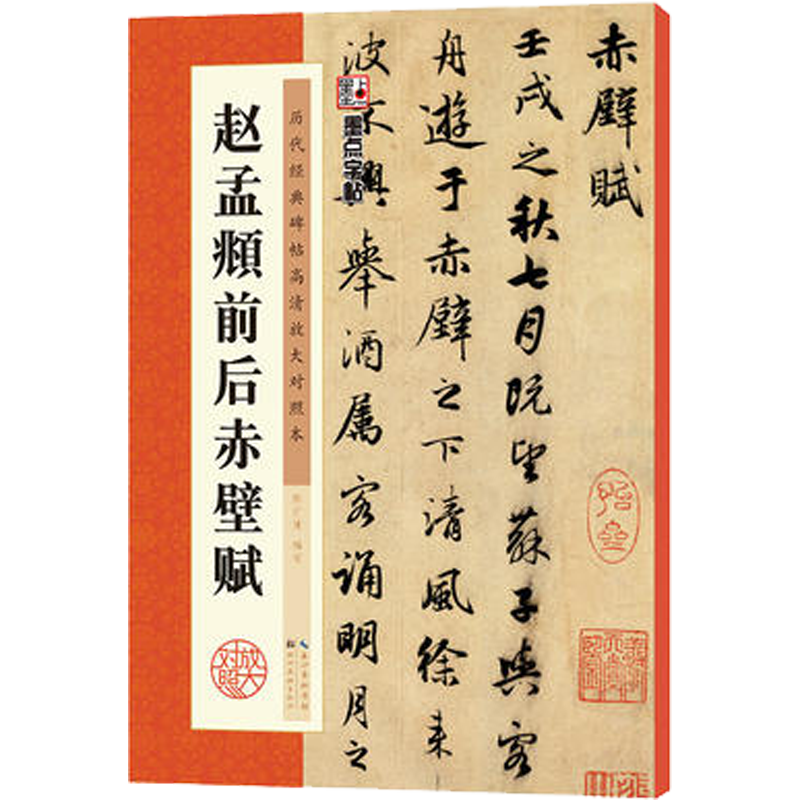 赤壁賦
壬戌之秋七月既望蘇子與客
舟遊于赤壁之下清風徐来
波不興舉酒属客誦明月之
墨点字帖
历代经典碑帖高清放大对照本
赵孟頫前后赤壁赋
放大对照